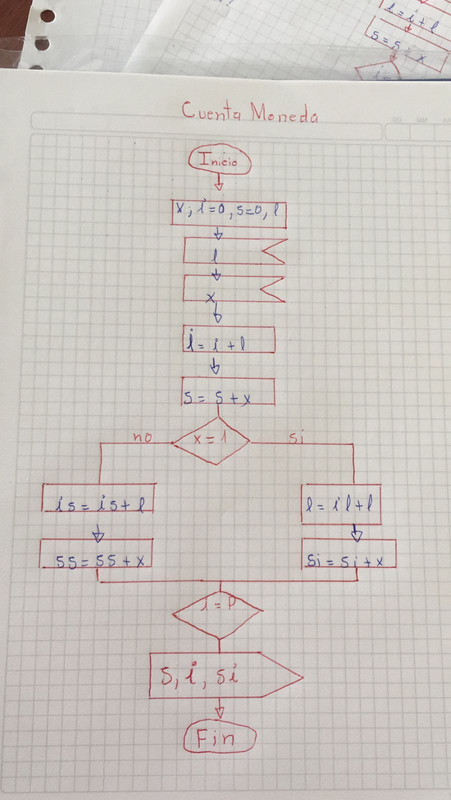 i = i + l
s = s + x
Cuenta Moneda
Inicio
x, i=0, s=0, l
l
x
i = i + l
s = s + x
no
x = 1
si
is = is + l
l = il + l
ss = ss + x
si = si + x
i = P
s, i, si
Fin